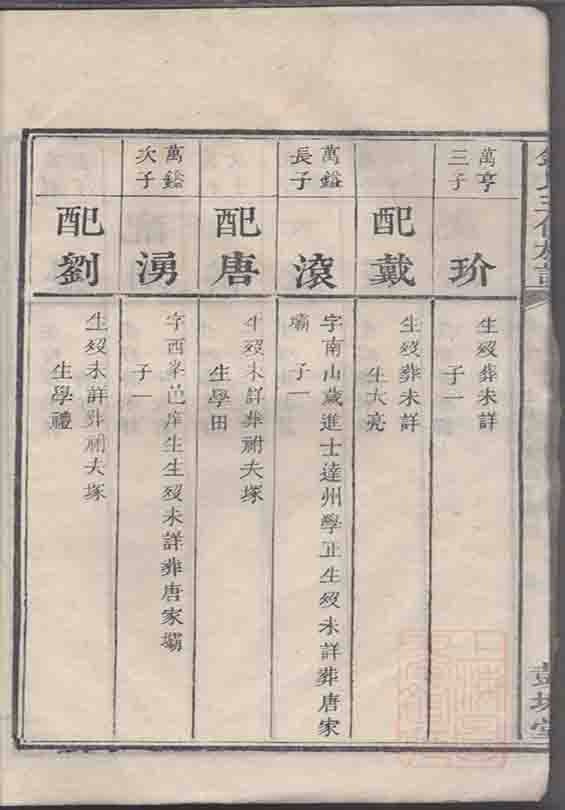 萬亨
三子
玠
生歿葬未詳
子一
配戴
生歿葬未詳
生大亮
萬鎰
長子
滾
字南山歲進士達州學正生歿未詳葬唐家
壩 子一
配唐
生歿未詳葬祔夫塚
生學田
萬鎰
次子
湧
字西峯邑庠生生歿未詳葬唐家壩
子一
配劉
生歿未詳葬祔夫塚
生學禮